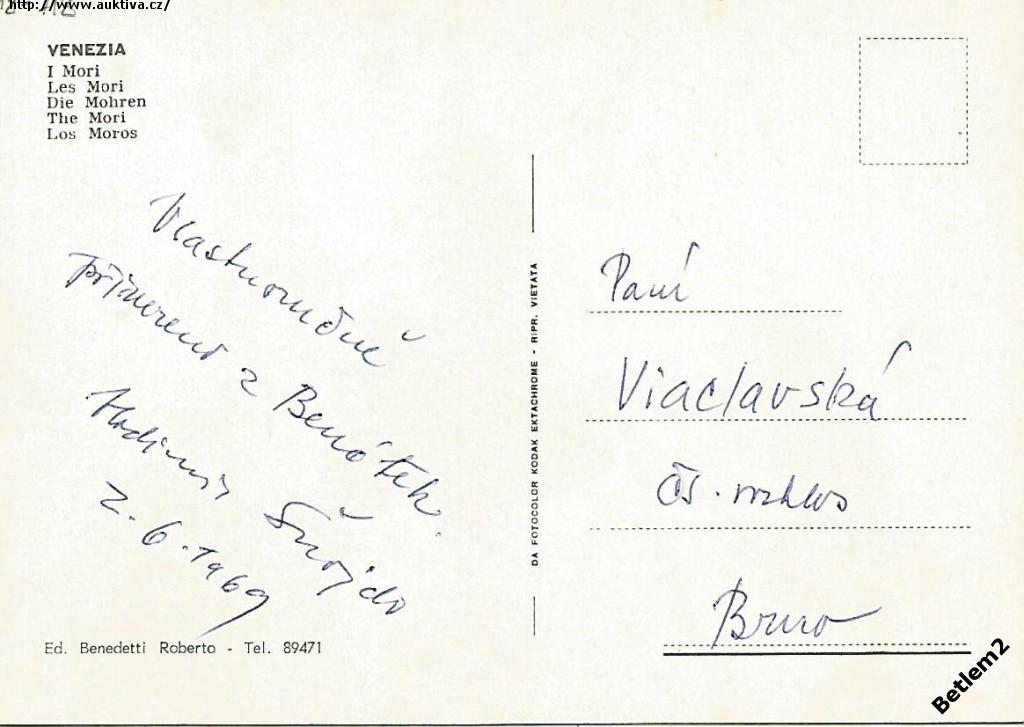 http://www.auktiva.cz/
VENEZIA
I Mori
Les Mori
Die Mohren
The Mori
Los Moros
Vlastnoručně
přivezené z Benátek.
2.6.1969
Ed. Benedetti Roberto - Tel. 89471
DA FOTOCOLOR KODAK EKTACHROME - RIPR. VIETATA
Paní
Viaclavská
Čs. rozhlas
Brno
Betlem2